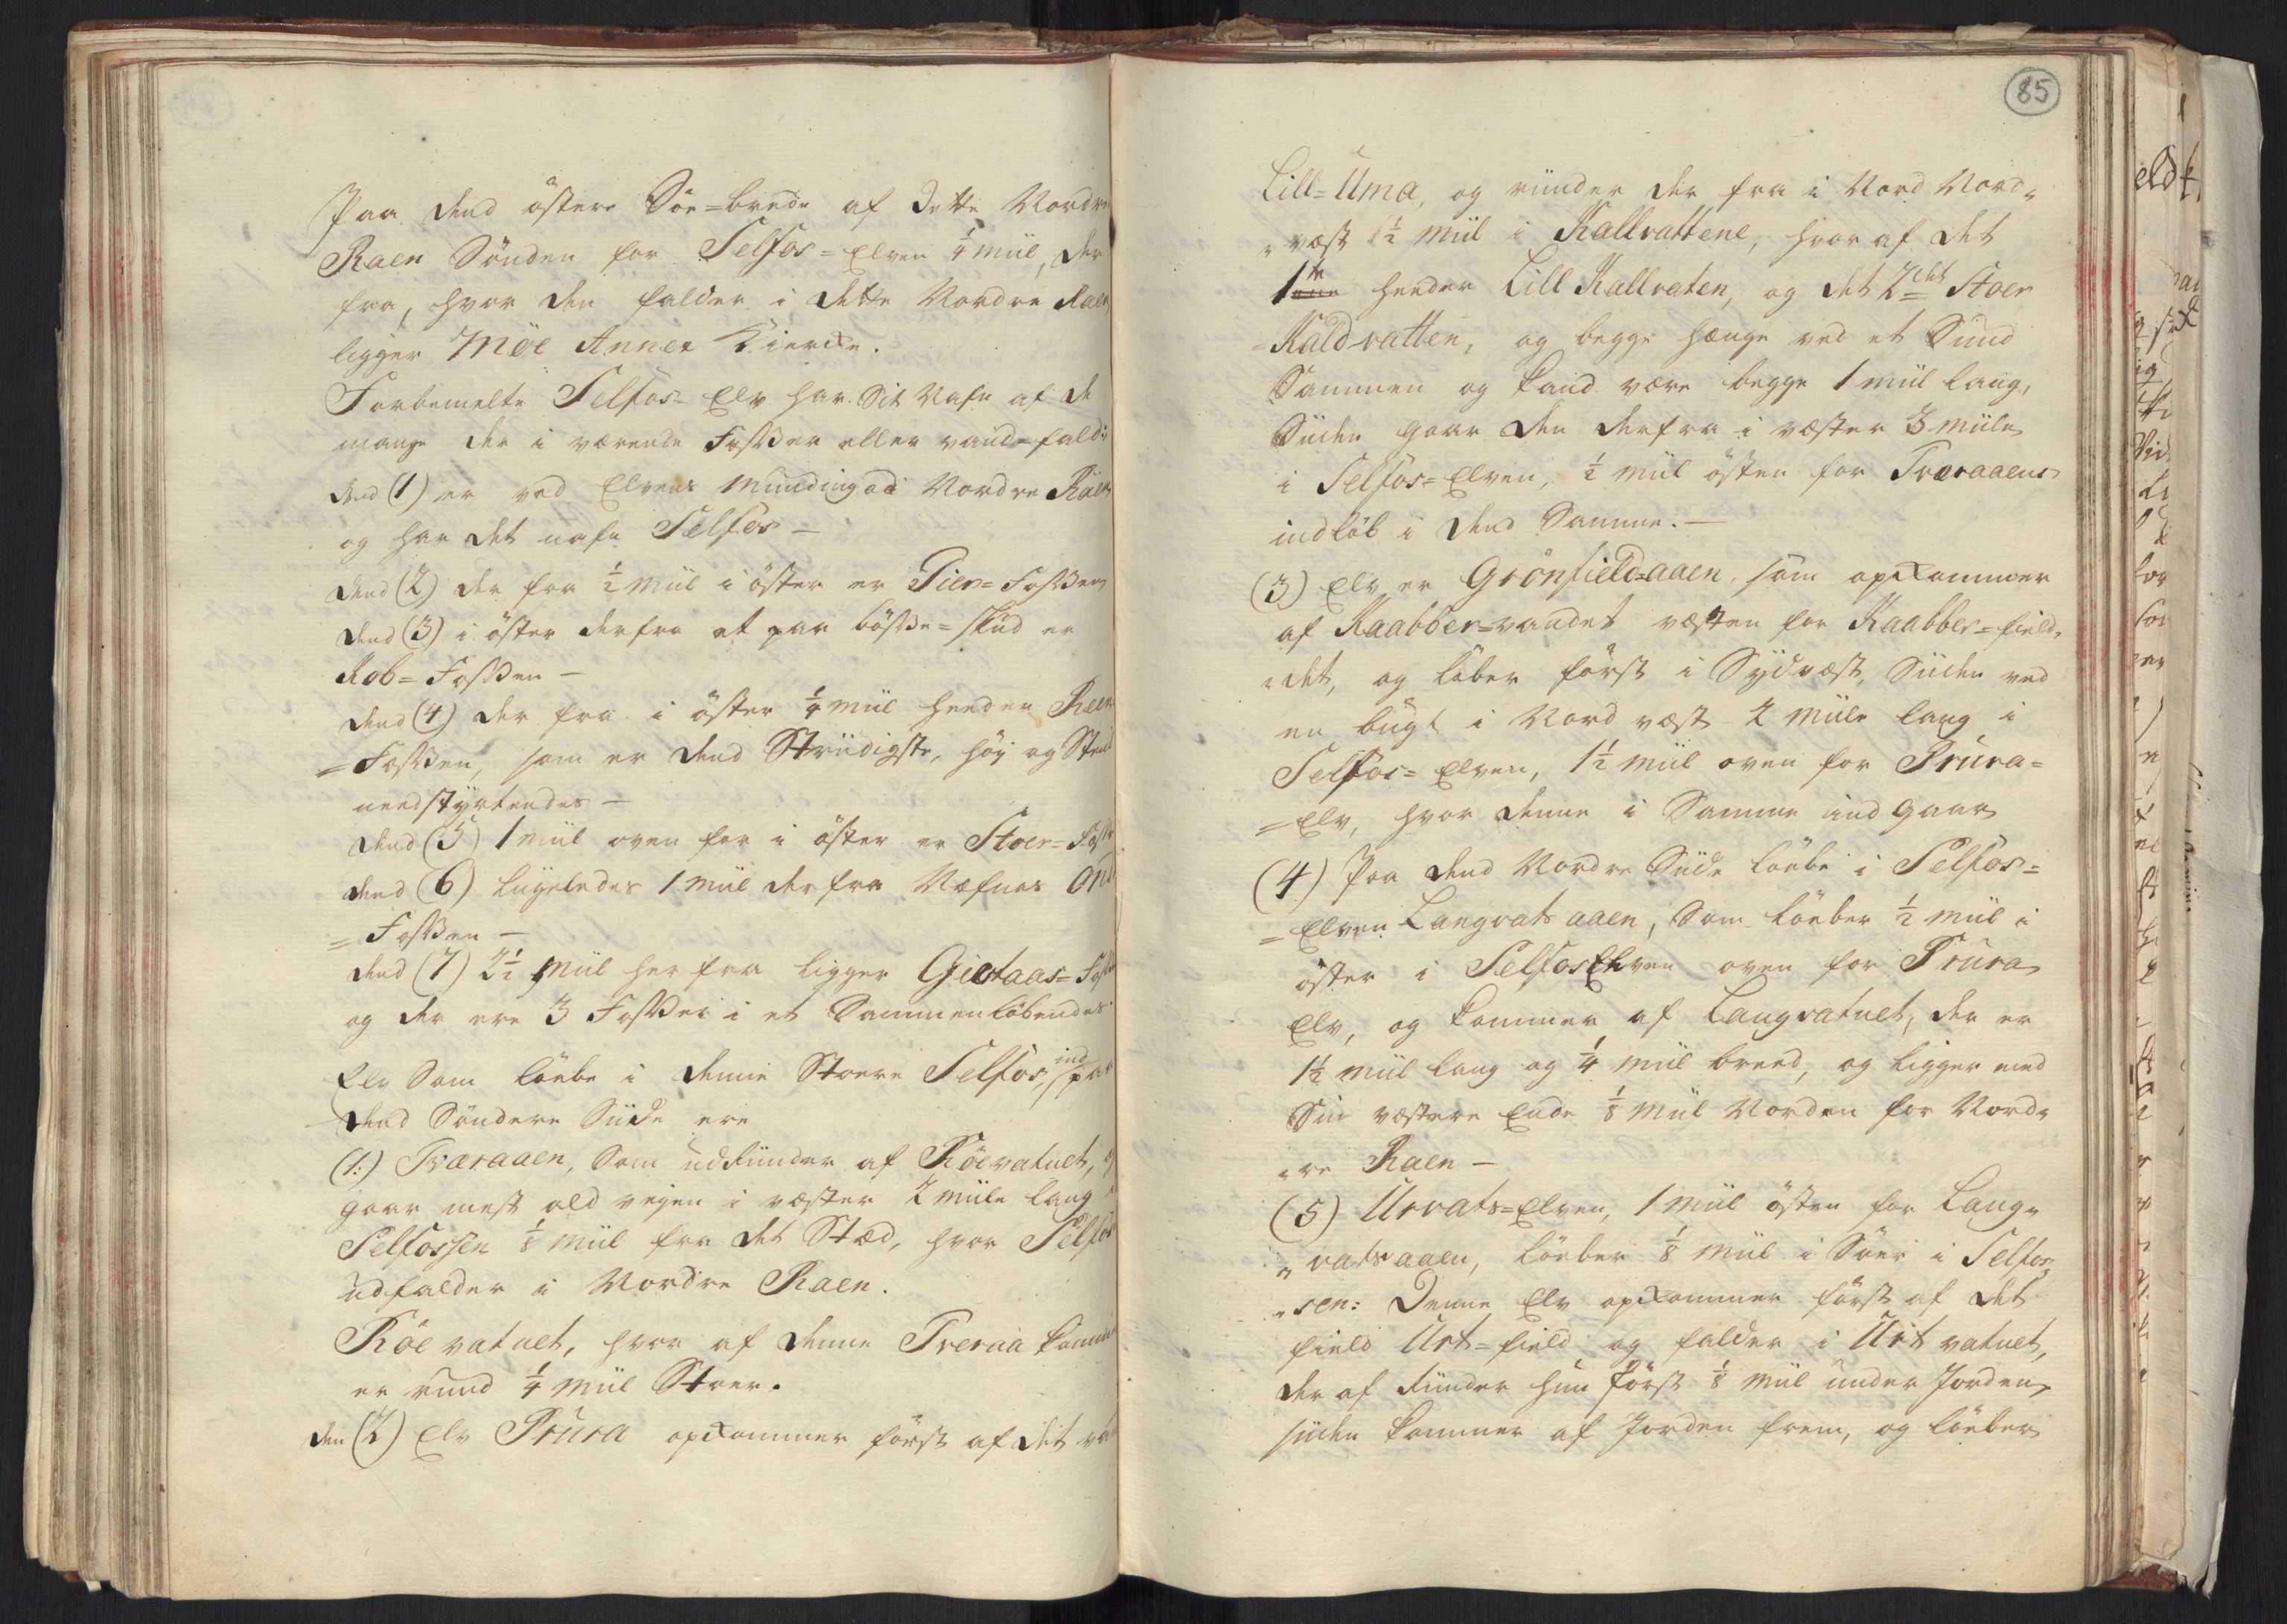 Paa dend östere Söe=brede af dette Nordre
Raen Sönden for Selfos=Elven ¼ miil, der
fra, hvor den falder i dette Nordre Raen
ligger Möe Annex Kiercke.
Forbemelte Selfos=Elv har Sit Nafn af de
mange der i værende Fosser eller vand=fald:
dend (1) er ved Elvens Munding ad Nordre Raen
og har det nafn Selfos —
dend (2) der fra ½ miil i öster er Tier=Fossen
dend (3) i öster derfra et par bösse=skud er
Rob=Fossen —
dend (4) der fra i öster ¼ miil heeder Reen
=Fossen, som er dend Striidigste, höy og Steil
needstyrtendes —
dend (5) 1 miil oven for i öster er Stoer=Foss
dend (6) liigeledes 1 miil derfra Næfnes Ond
=Fossen —
dend (7) 2½ miil her fra ligger Giætaas=Foss
og der ere 3 Fosser i et Sammenlöbendes
Elv Som löebe i denne Stoere Selfos, ind paa
dend Söndere Siide ere
(1:) Tværaaen, Som udRinder af Röevatnet, og
gaar mest ald vejen i væster 2 miile lang
Selfossen ⅛ miil fra det Stæd, hvor Selfos
udfalder i Nordre Raen.
Röevatnet, hvor af denne Treraa kommer
er rund ¼ miil Stoer.
den (2) Elv Prura opkommer först af det
85
Lill=Uma, og rinder der fra i Nord Nord„
„væst 1½ miil i Kallvattene, hvoraf det
1te heeder Lill Kallvaten, og det 2det Stoer
=Kaldvatten, og begge hænge ved et Sund
Sammen og kand være begge 1 miil lang,
Siiden gaar den derfra i væster 3 miile
i Selfos=Elven, ½ miil östen for Tværaaens
indlöb i dend Samme. —
(3) Elv er Grönfield=aaen, som opkommer
af Kaabber=vandet væsten for Kaabber=field„
„det, og löber först i Sydvæst, Siiden ved
en bugt i Nord væst 2 miile lang i
Selfos=Elven, 1½ miil oven for Prura=
=Elv, hvor denne i Samme ind gaar
(4) Paa dend Nordre Siide löebe i Selfos=
=Elven Langvats aaen, Som löeber ½ miil i
öster i Selfos Elven oven for Prura
Elv, og kommer af Langvatnet, der er
1½ miil lang og ¼ miil breed, og ligger med
Sin væstere Ende ⅛ miil Norden for Nord„
„re Raen —
(5) Urvats=Elven, 1 miil östen for Lang„
„vatsaaen, löeber ⅛ miil i Söer i Selfos„
„sen: Denne Elv opkommer först af det
field Urt=field og falder i Urt vatnet,
der af Rinder hun först ⅛ miil under Jorden,
siiden kommer af Jorden frem, og löeber